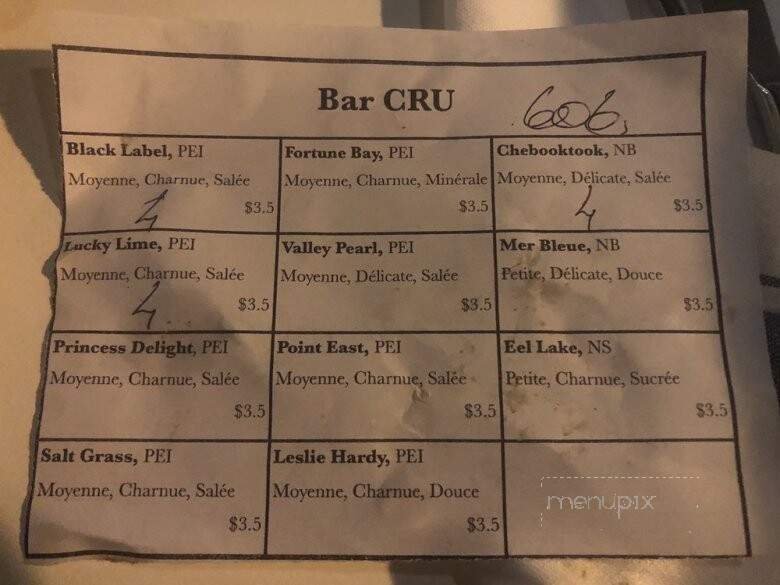 Bar CRU
606
Black Label, PEI
Moyenne, Charnue, Salée
4
$3.5
Fortune Bay, PEI
Moyenne, Charnue, Minérale
$3.5
Chebooktook, NB
Moyenne, Délicate, Salée
4
$3.5
Lucky Lime, PEI
Moyenne, Charnue, Salée
4
$3.5
Valley Pearl, PEI
Moyenne, Délicate, Salée
$3.5
Mer Bleue, NB
Petite, Délicate, Douce
$3.5
Princess Delight, PEI
Moyenne, Charnue, Salée
$3.5
Point East, PEI
Moyenne, Charnue, Salée
$3.5
Eel Lake, NS
Petite, Charnue, Sucrée
$3.5
Salt Grass, PEI
Moyenne, Charnue, Salée
$3.5
Leslie Hardy, PEI
Moyenne, Charnue, Douce
$3.5
menupix